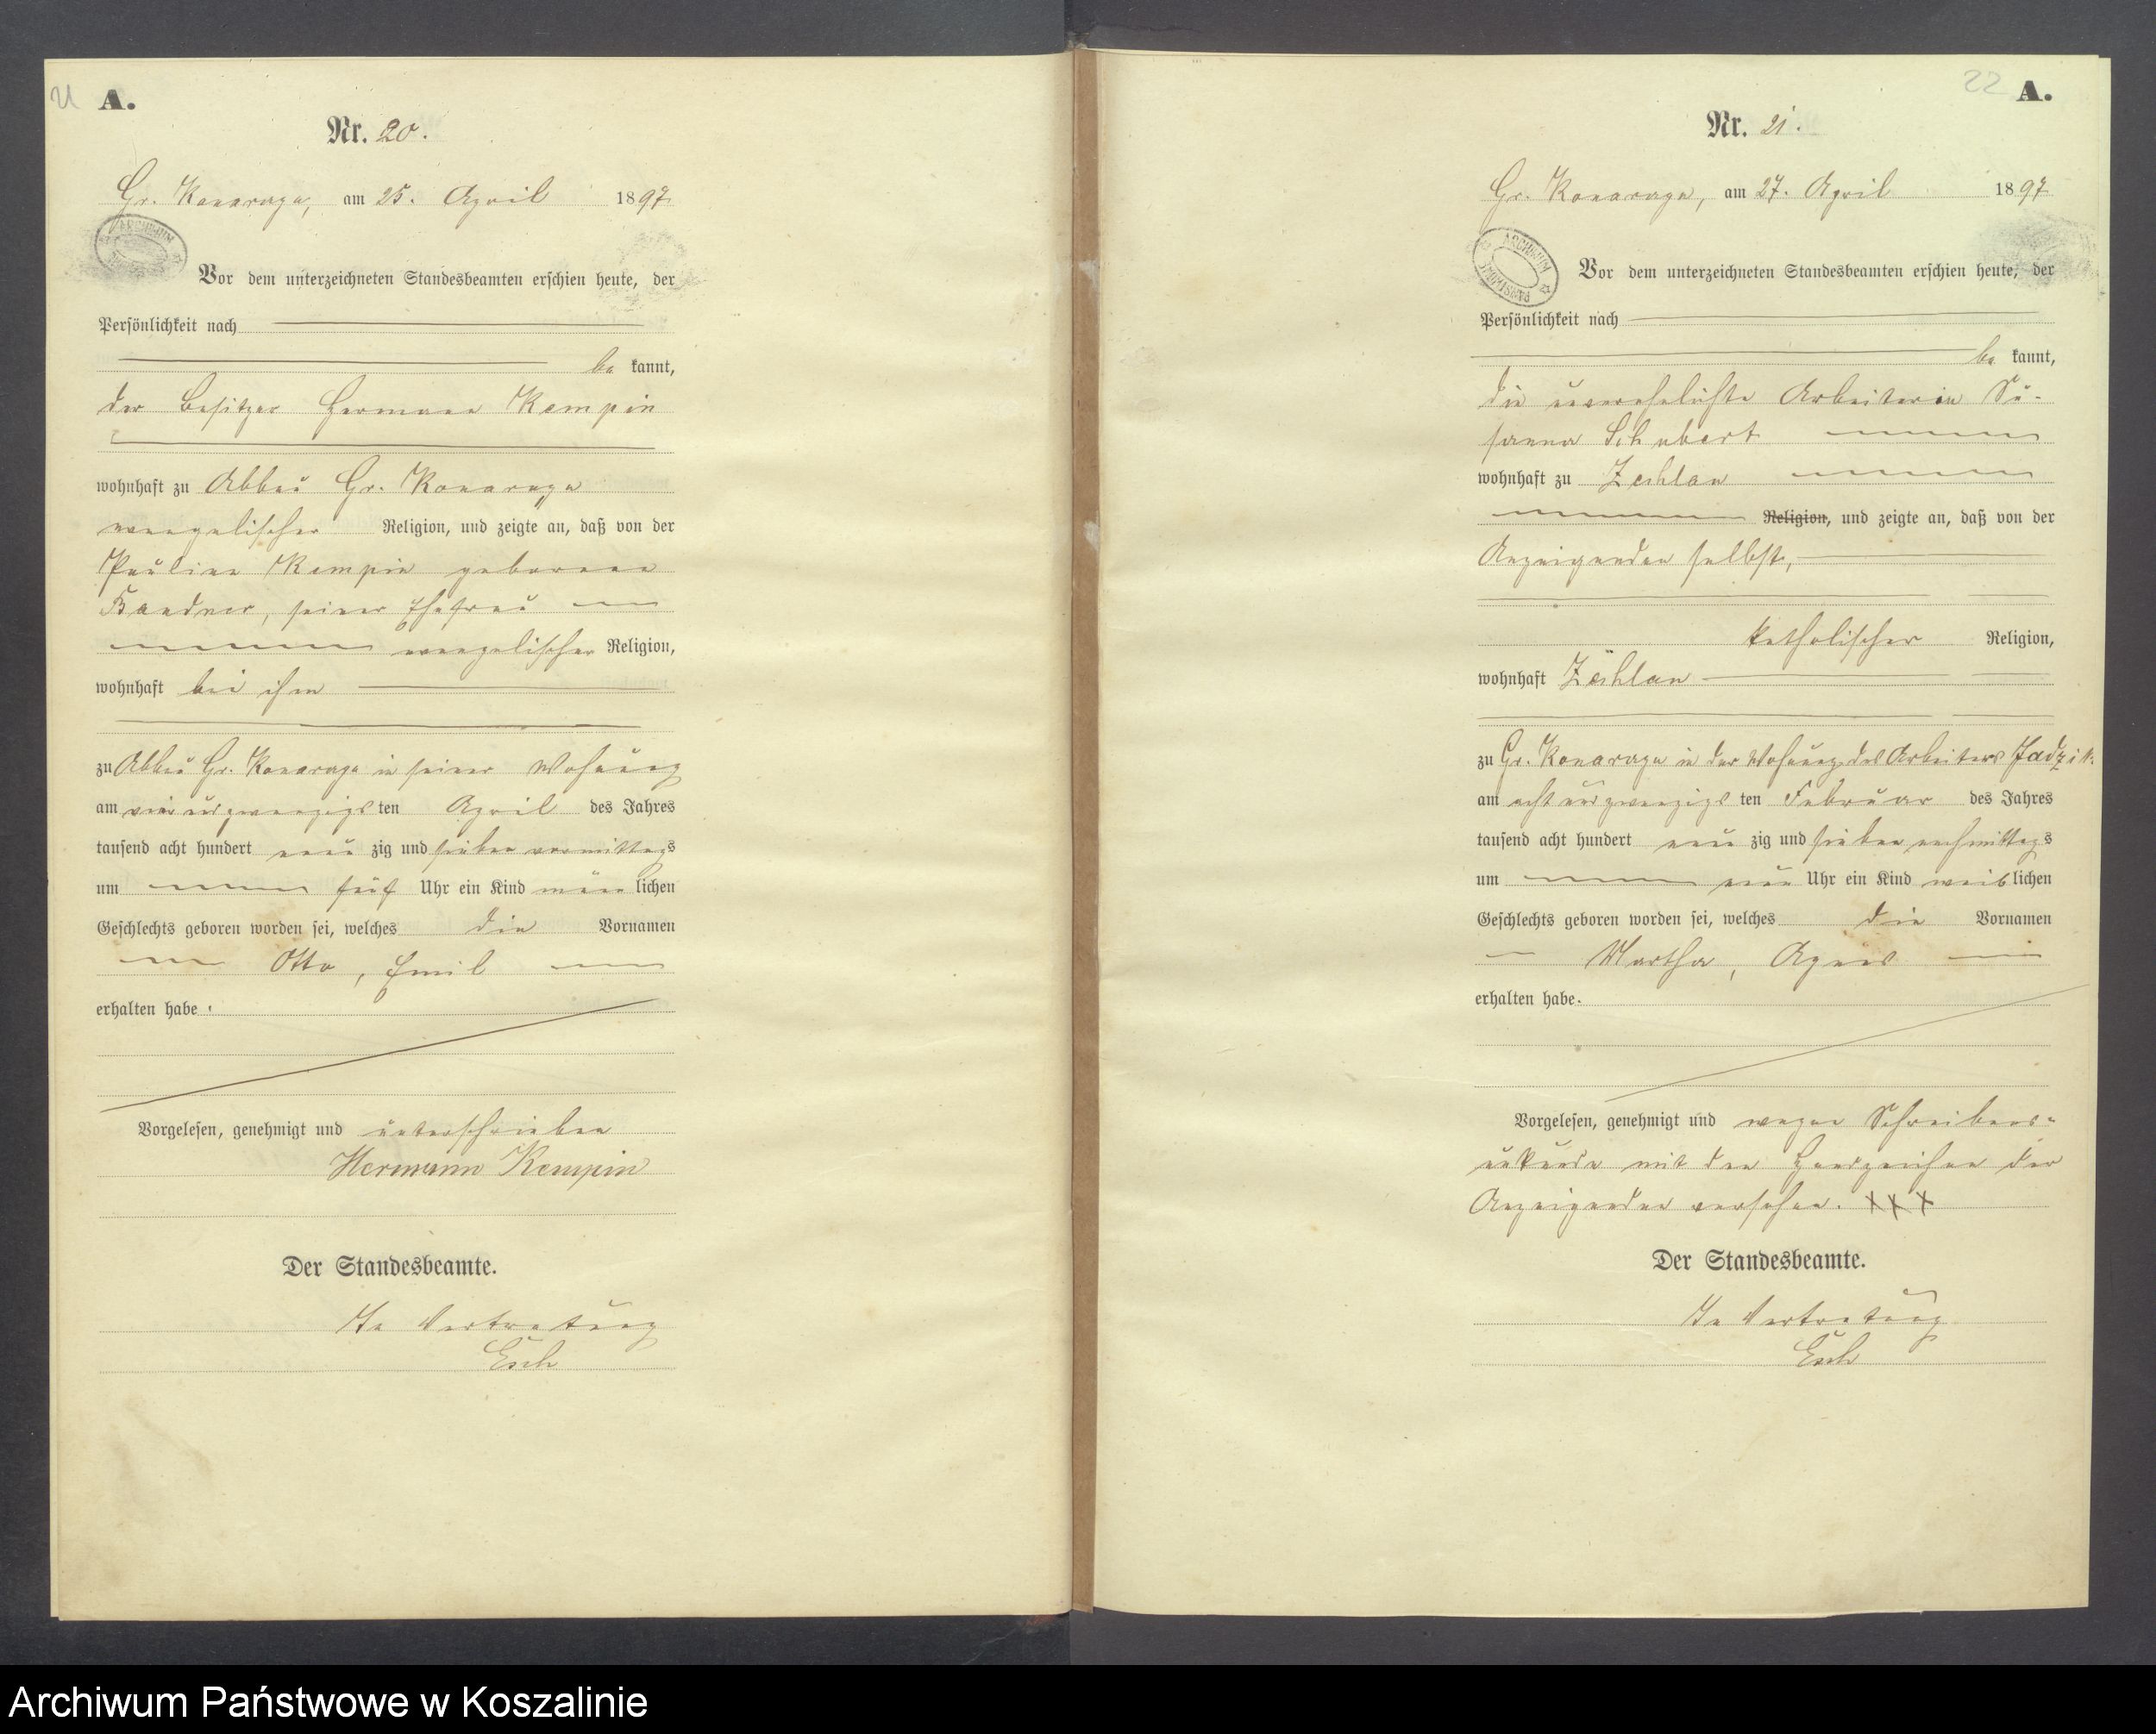 A.
Nr. 20.
Gr. Konarzyn, am 25. April 1897
Vor dem unterzeichneten Standesbeamten erschien heute, der
Persönlichkeit nach
be kannt,
der Besitzer Hermann Kempin
wohnhaft zu Abbau Gr. Konarzyn
evangelischer Religion, und zeigte an, daß von der
Pauline Kempin geborene
Bandner, seiner Ehefrau
evangelischer Religion,
wohnhaft bei ihm
zu Abbau Gr. Konarzyn in seiner Wohnung
am vierundzwanzigs ten April des Jahres
tausend acht hundert neun zig und sieben vormittags
um fünf Uhr ein Kind männ lichen
Geschlechts geboren worden sei, welches die Vornamen
Otto, Emil
erhalten habe.
Vorgelesen, genehmigt und unterschrieben
Hermann Kempin
Der Standesbeamte.
In Vertretung
Esch
22 A.
Nr. 21.
Gr. Konarzyn, am 27. April 1897
ARCHIWUM PAŃSTWOWE
Vor dem unterzeichneten Standesbeamten erschien heute, der
Persönlichkeit nach
be kannt,
die unverehelichte Arbeiterin Su-
sanna Schubert
wohnhaft zu Zechlau
Religion, und zeigte an, daß von der
Anzeigenden selbst,
katholischer Religion,
wohnhaft Zechlau
zu Gr. Konarzyn in der Wohnung des Arbeiters Jadzik
am achtundzwanzigs ten Februar des Jahres
tausend acht hundert neun zig und sieben nachmittags
um neun Uhr ein Kind weib lichen
Geschlechts geboren worden sei, welches die Vornamen
Martha, Agnes
erhalten habe.
Vorgelesen, genehmigt und wegen Schreibens-
unkunde mit den Handzeichen der
Anzeigenden versehen. XXX
Der Standesbeamte.
In Vertretung
Esch
Archiwum Państwowe w Koszalinie